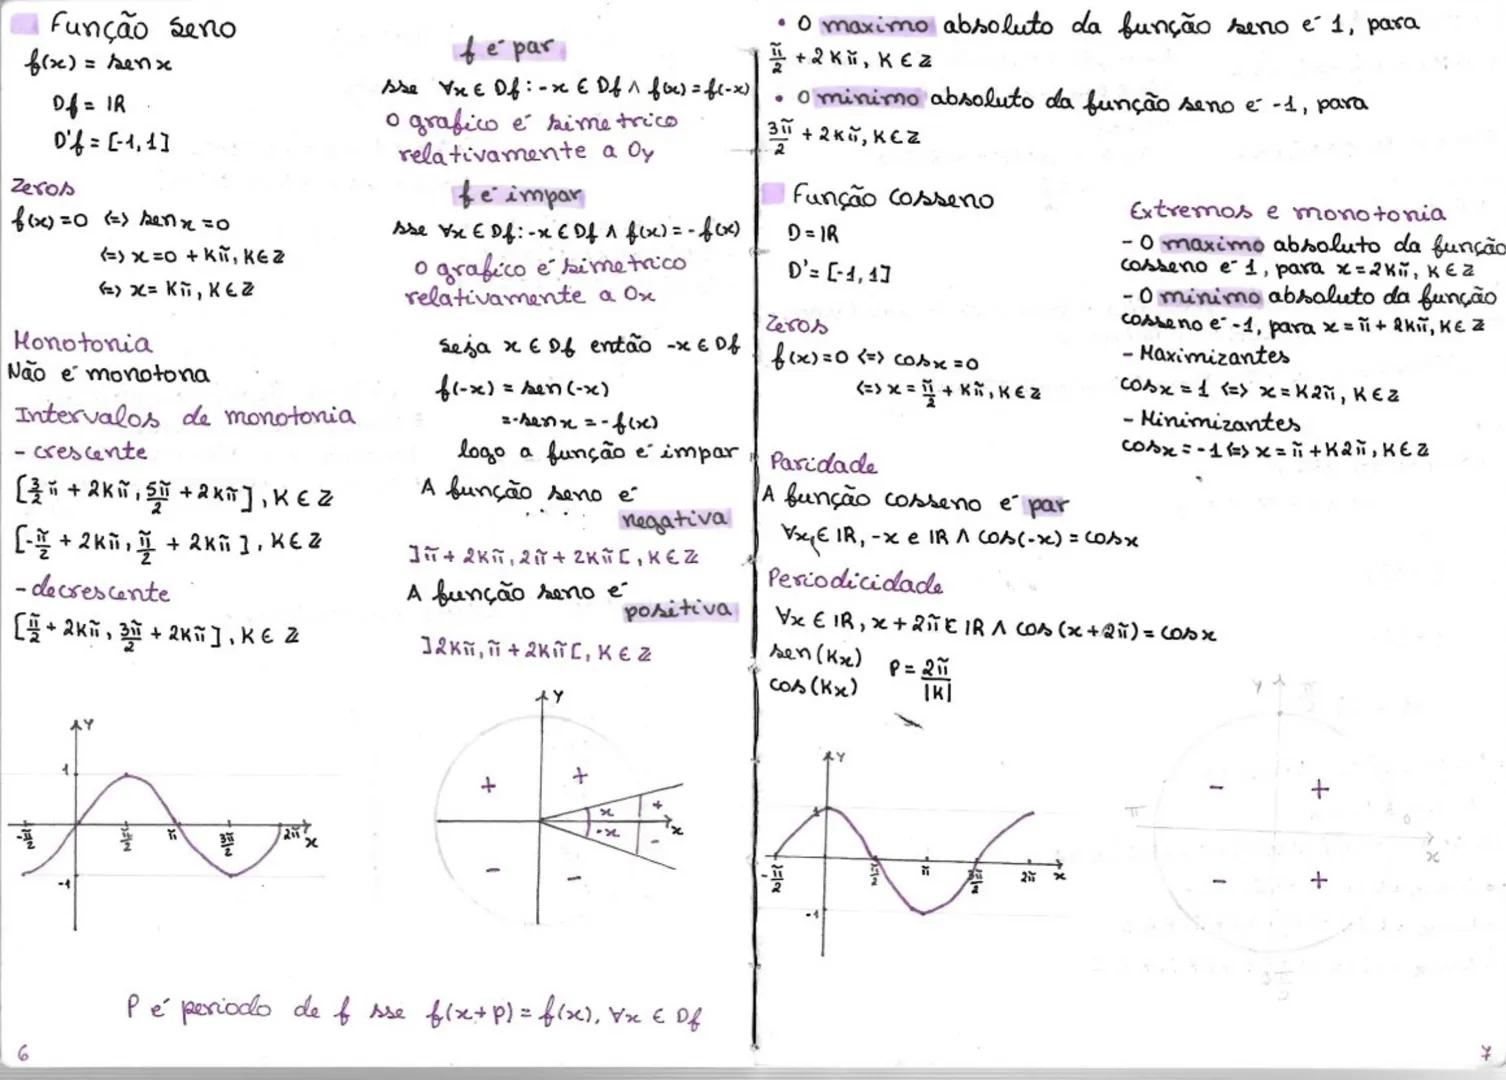 Função seno
f(x) = sen x
Df = IR
D'f = [-1, 1]
Zeros
f(x) = 0 <=> sen x = 0
<=> x = 0 + Kπ, K ∈ Z
<=> x = Kπ, K ∈ Z
Monotonia
Não é monotona
Intervalos de monotonia
- crescente
[3/2 π + 2Kπ, 5π/2 + 2Kπ], K ∈ Z
[-π/2 + 2Kπ, π/2 + 2Kπ], K ∈ Z
- decrescente
[π/2 + 2Kπ, 3π/2 + 2Kπ], K ∈ Z
f é par
sse ∀x ∈ Df : -x ∈ Df ∧ f(x) = f(-x)
o grafico é simetrico
relativamente a Oy
f é impar
sse ∀x ∈ Df : -x ∈ Df ∧ f(x) = -f(x)
o grafico é simetrico
relativamente a Ox
Seja x ∈ Df então -x ∈ Df
f(-x) = sen(-x)
= -sen x = -f(x)
logo a função é impar
A função seno é
negativa
]π + 2Kπ, 2π + 2Kπ[, K ∈ Z
A função seno é
positiva
]2Kπ, π + 2Kπ[, K ∈ Z
Y
1
-π/2 π/2 π 3π/2 2π x
-1
Y
+ +
x +
-x x
-
- -
P é periodo de f sse f(x+p) = f(x), ∀x ∈ Df
6
• O maximo absoluto da função seno é 1, para
π/2 + 2Kπ, K ∈ Z
• O minimo absoluto da função seno é -1, para
3π/2 + 2Kπ, K ∈ Z
Função cosseno
D = IR
D' = [-1, 1]
Zeros
f(x) = 0 <=> cos x = 0
<=> x = π/2 + Kπ, K ∈ Z
Extremos e monotonia
- O maximo absoluto da função
cosseno é 1, para x = 2Kπ, K ∈ Z
- O minimo absoluto da função
cosseno é -1, para x = π + 2Kπ, K ∈ Z
- Maximizantes
cos x = 1 <=> x = K2π, K ∈ Z
- Minimizantes
cos x = -1 <=> x = π + K2π, K ∈ Z
Paridade
A função cosseno é par
∀x ∈ IR, -x e IR ∧ cos(-x) = cos x
Periodicidade
∀x ∈ IR, x + 2π ∈ IR ∧ cos(x + 2π) = cos x
sen(Kx)
cos(Kx)
P = 2π/|K|
Y
1
-π/2 π/2 π 3π/2 2π x
-1
Y
- +
π 0
x
- +
3π/2
7